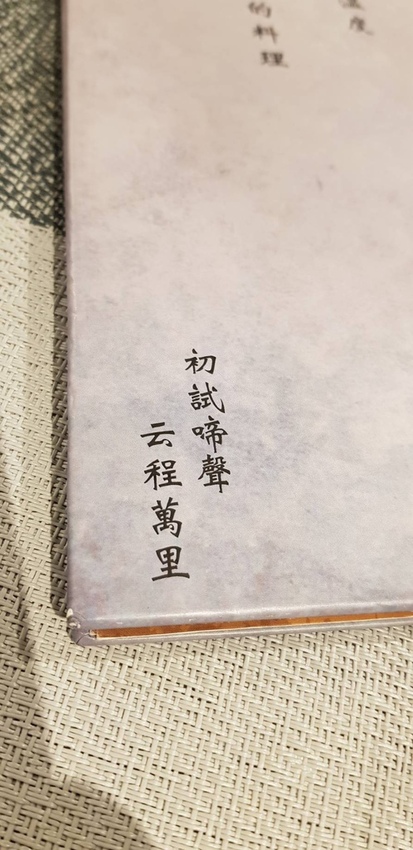 溫度
的料理
初試啼聲
云程萬里